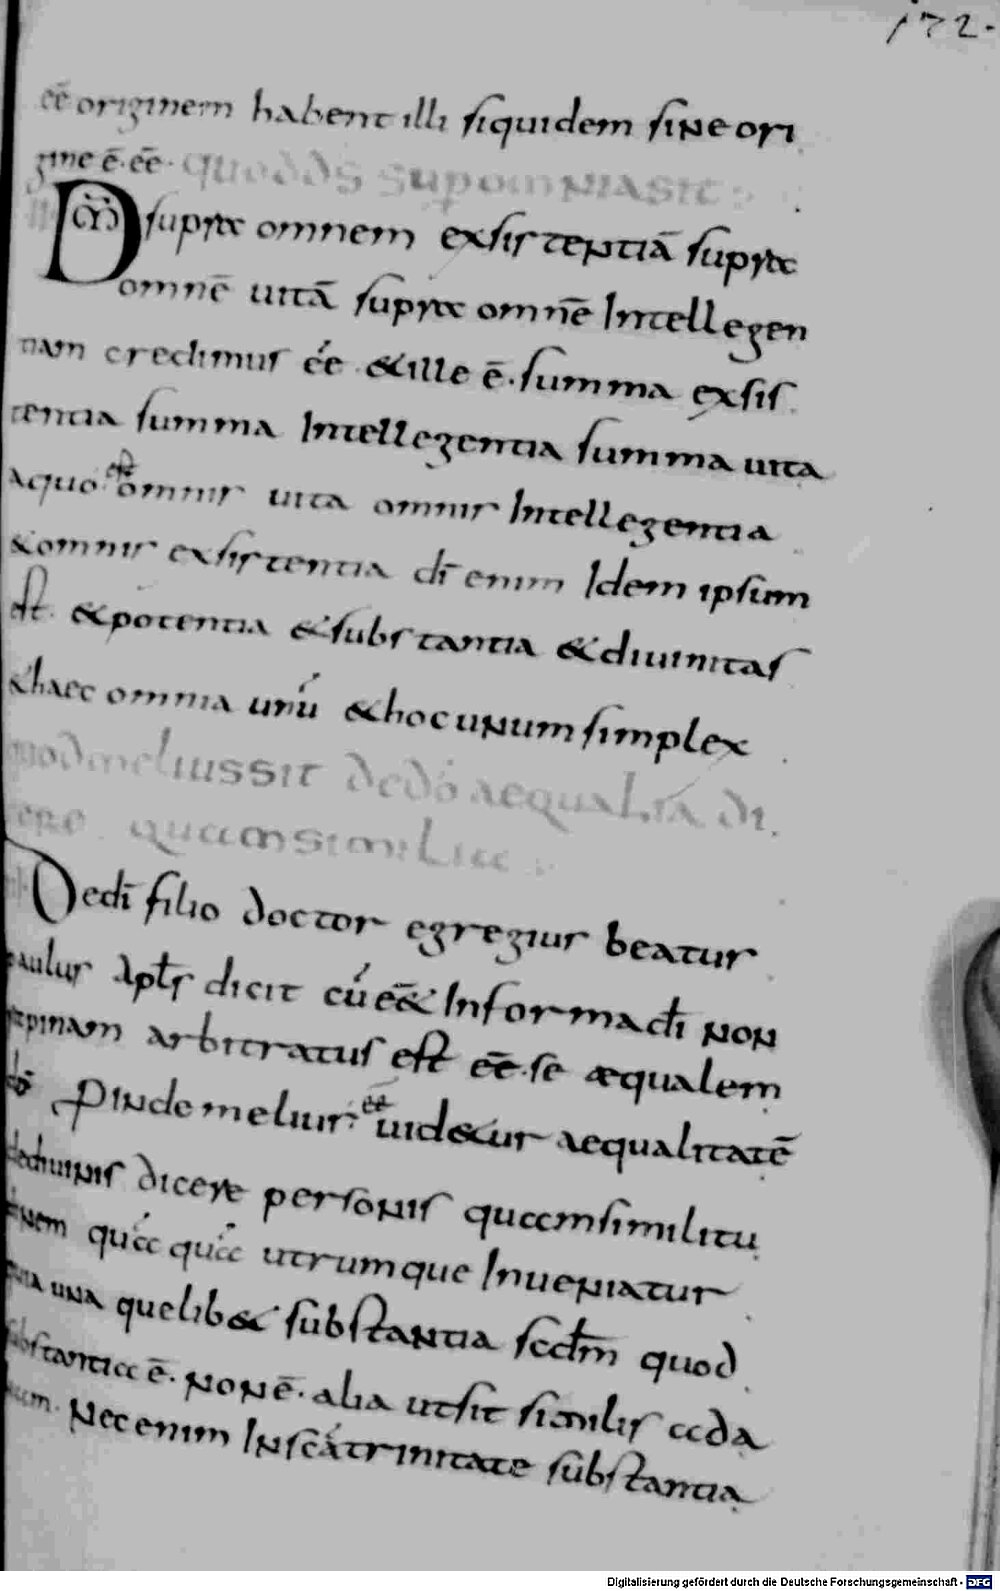 172.
eē originem habent illi siquidem sine ori
gine ē. eē. quod ds supra omnia sit
Dm supra omnem exsistentiā supra
omnē uitā supra omnē Intellegen
tiam credimus eé &ille ē. summa exsis
tentia summa Intellegentia summa uita
Aquo est omnis uita omnis Intellegentia
&omnis exsistentia dī enim Idem ipsum
est. &potentia &substantia &diuinitas
&haec omnia unū &hoc unum simplex
quod melius sit de dō aequalia di
cere quam similia
Dedī filio doctor egregius beatus
paulus Apłs dicit cū eē& Informa dī non
rapinam arbitratus est eē. se æqualem
dō Proinde melius eē uidetur aequalitatē
de diuinis dicere personis quam similitu
dinem quia quia utrumque Inueniatur
una quelib& substantia secdm quod
substantia ē. non ē. alia ut sit similis ad a
liam. Nec enim In scā trinitate substantia
Digitalisierung gefördert durch die Deutsche Forschungsgemeinschaft - DFG